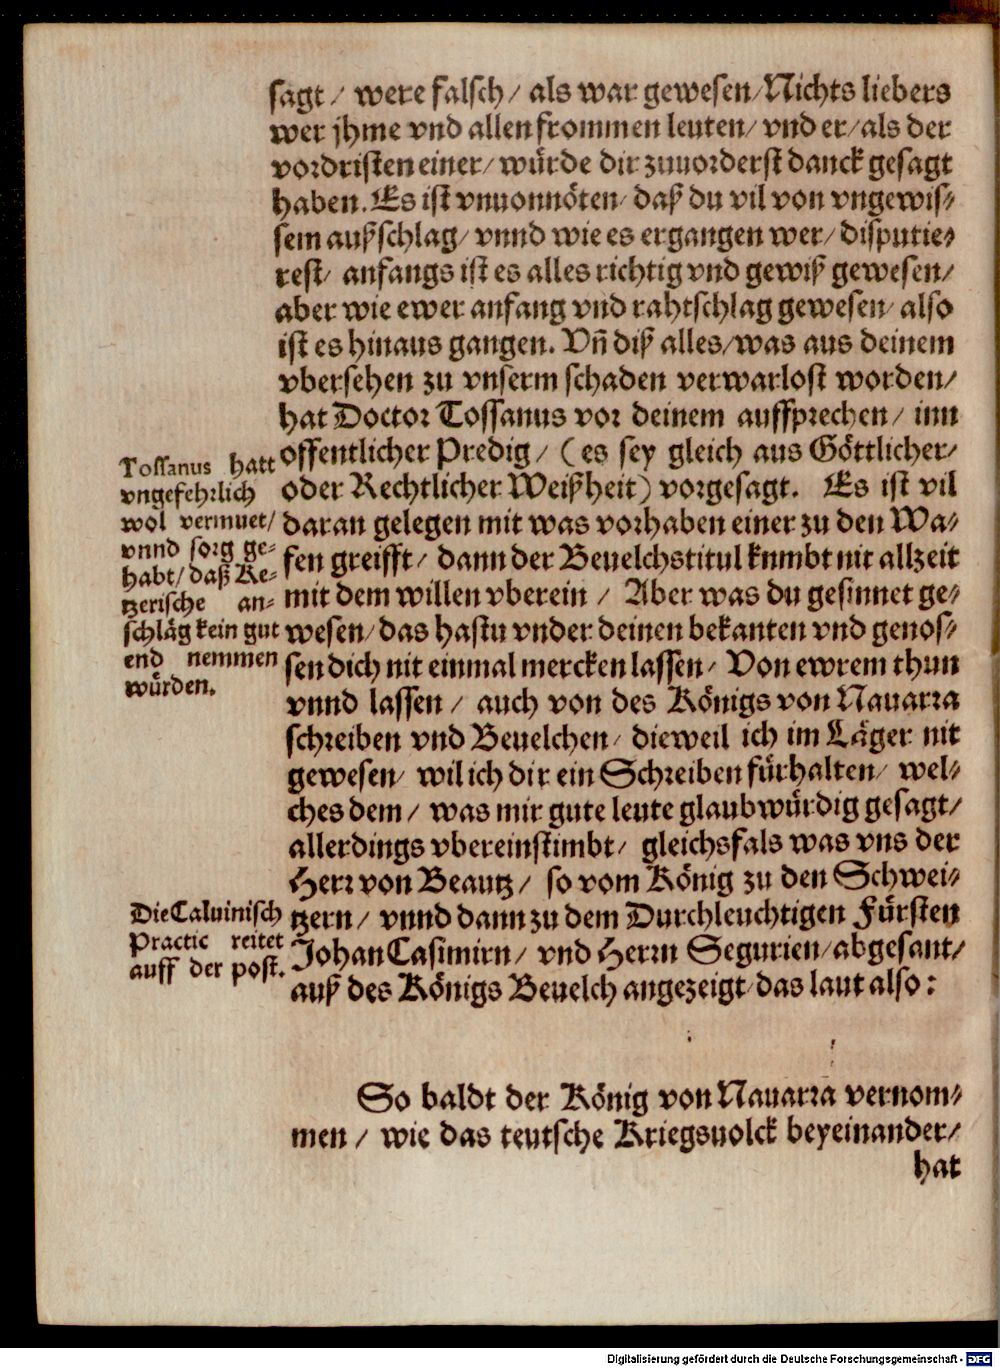 sagt / were falsch / als war gewesen / Nichts liebers
wer jhme vnd allen frommen leuten / vnd er / als der
vordristen einer / würde dir zuuorderst danck gesagt
haben. Es ist vnuonnöten / daß du vil von vngewis-
sem außschlag / vnnd wie es ergangen wer / disputie-
rest / anfangs ist es alles richtig vnd gewiß gewesen /
aber wie ewer anfang vnd rahtschlag gewesen / also
ist es hinaus gangen. Vñ diß alles / was aus deinem
vbersehen zu vnserm schaden verwarlost worden /
hat Doctor Tossanus vor deinem auffsprechen / inn
offentlicher Predig / (es sey gleich aus Göttlicher /
oder Rechtlicher Weißheit) vorgesagt. Es ist vil
daran gelegen mit was vorhaben einer zu den Wa-
fen greifft / dann der Beuelchstitul kumbt nit allzeit
mit dem willen vberein / Aber was du gesinnet ge-
wesen / das hastu vnder deinen bekanten vnd genos-
sen dich nit einmal mercken lassen / Von ewrem thun
vnnd lassen / auch von des Königs von Nauarra
schreiben vnd Beuelchen / dieweil ich im Läger nit
gewesen / wil ich dir ein Schreiben fürhalten / wel-
ches dem / was mir gute leute glaubwürdig gesagt /
allerdings vbereinstimbt / gleichsfals was vns der
Herr von Beautz / so vom König zu den Schwei-
tzern / vnnd dann zu dem Durchleuchtigen Fürsten
Johan Casimirn / vnd Herrn Segurien / abgesant /
auß des Königs Beuelch angezeigt / das laut also:
Tossanus hatt
vngefehrlich
wol vermuet /
vnnd sorg ge-
habt / daß Ke-
tzerische an-
schläg kein gut
end nemmen
würden.
Die Caluinisch
Practic reitet
auff der post.
So baldt der König von Nauarra vernom-
men / wie das teutsche Kriegsuolck beyeinander /
hat
Digitalisierung gefördert durch die Deutsche Forschungsgemeinschaft - DFG